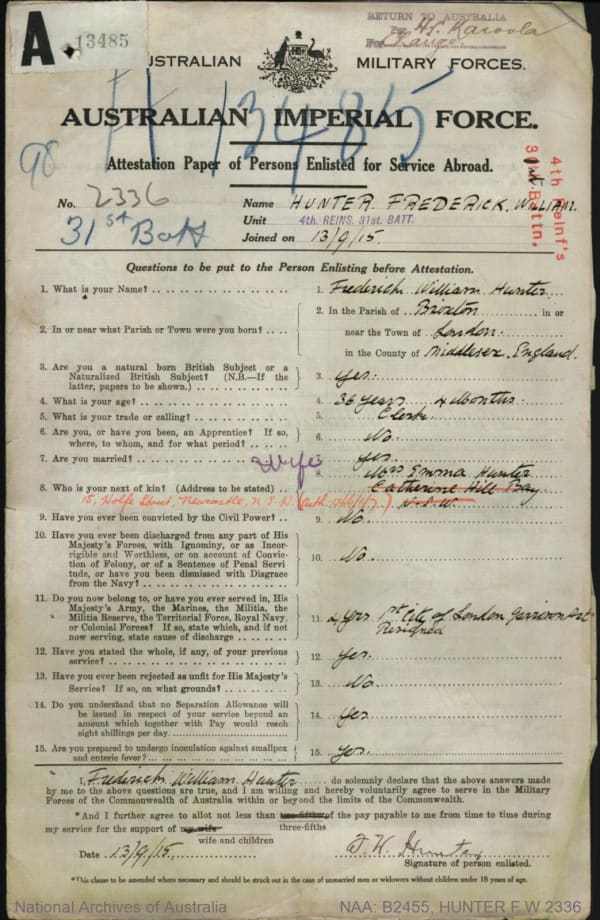 A
13485
RETURN TO AUSTRALIA
Per H.S. Karoola
For
AUSTRALIAN MILITARY FORCES.
H 13485
AUSTRALIAN IMPERIAL FORCE.
98
Attestation Paper of Persons Enlisted for Service Abroad.
4th Reinf's
31st Battn.
No. 2336
31st Batt
Name HUNTER. FREDERICK. WILLIAM.
Unit 4th. REINS. 31st. BATT.
Joined on 13/9/15.
Questions to be put to the Person Enlisting before Attestation.
1. What is your Name? 1. Frederick William Hunter
2. In or near what Parish or Town were you born? 2. In the Parish of Brixton in or
near the Town of London
in the County of Middlesex. England.
3. Are you a natural born British Subject or a
Naturalized British Subject? (N.B.—If the
latter, papers to be shown.) 3. yes.
4. What is your age? 4. 36 years 4 Months
5. What is your trade or calling? 5. Clerk
6. Are you, or have you been, an Apprentice? If so,
where, to whom, and for what period? 6. No.
7. Are you married? 7. yes
Wife
8. Who is your next of kin? (Address to be stated) 8. Mrs Emma Hunter
Catherine Hill Bay
N.S.W.
15, Wolfe Street, Newcastle, N.S.W.
9. Have you ever been convicted by the Civil Power? 9. No.
10. Have you ever been discharged from any part of His
Majesty's Forces, with Ignominy, or as Incor-
rigible and Worthless, or on account of Convic-
tion of Felony, or of a Sentence of Penal Servi
tude, or have you been dismissed with Disgrace
from the Navy? 10. No.
11. Do you now belong to, or have you ever served in, His
Majesty's Army, the Marines, the Militia, the
Militia Reserve, the Territorial Force, Royal Navy,
or Colonial Forces? If so, state which, and if not
now serving, state cause of discharge 11. 4 yrs 1st City of London Garrison Art
Resigned
12. Have you stated the whole, if any, of your previous
service? 12. yes.
13. Have you ever been rejected as unfit for His Majesty's
Service? If so, on what grounds? 13. No
14. Do you understand that no Separation Allowance will
be issued in respect of your service beyond an
amount which together with Pay would reach
eight shillings per day. 14. yes
15. Are you prepared to undergo inoculation against smallpox
and enteric fever? 15. yes.
I, Frederick William Hunter do solemnly declare that the above answers made
by me to the above questions are true, and I am willing and hereby voluntarily agree to serve in the Military
Forces of the Commonwealth of Australia within or beyond the limits of the Commonwealth.
*And I further agree to allot not less than two-fifths of the pay payable to me from time to time during
three-fifths
my service for the support of my wife
wife and children
Date 13/9/15. F. W. Hunter
Signature of person enlisted.
*This clause to be amended where necessary and should be struck out in the case of unmarried men or widowers without children under 18 years of age.
National Archives of Australia NAA: B2455, HUNTER F W 2336